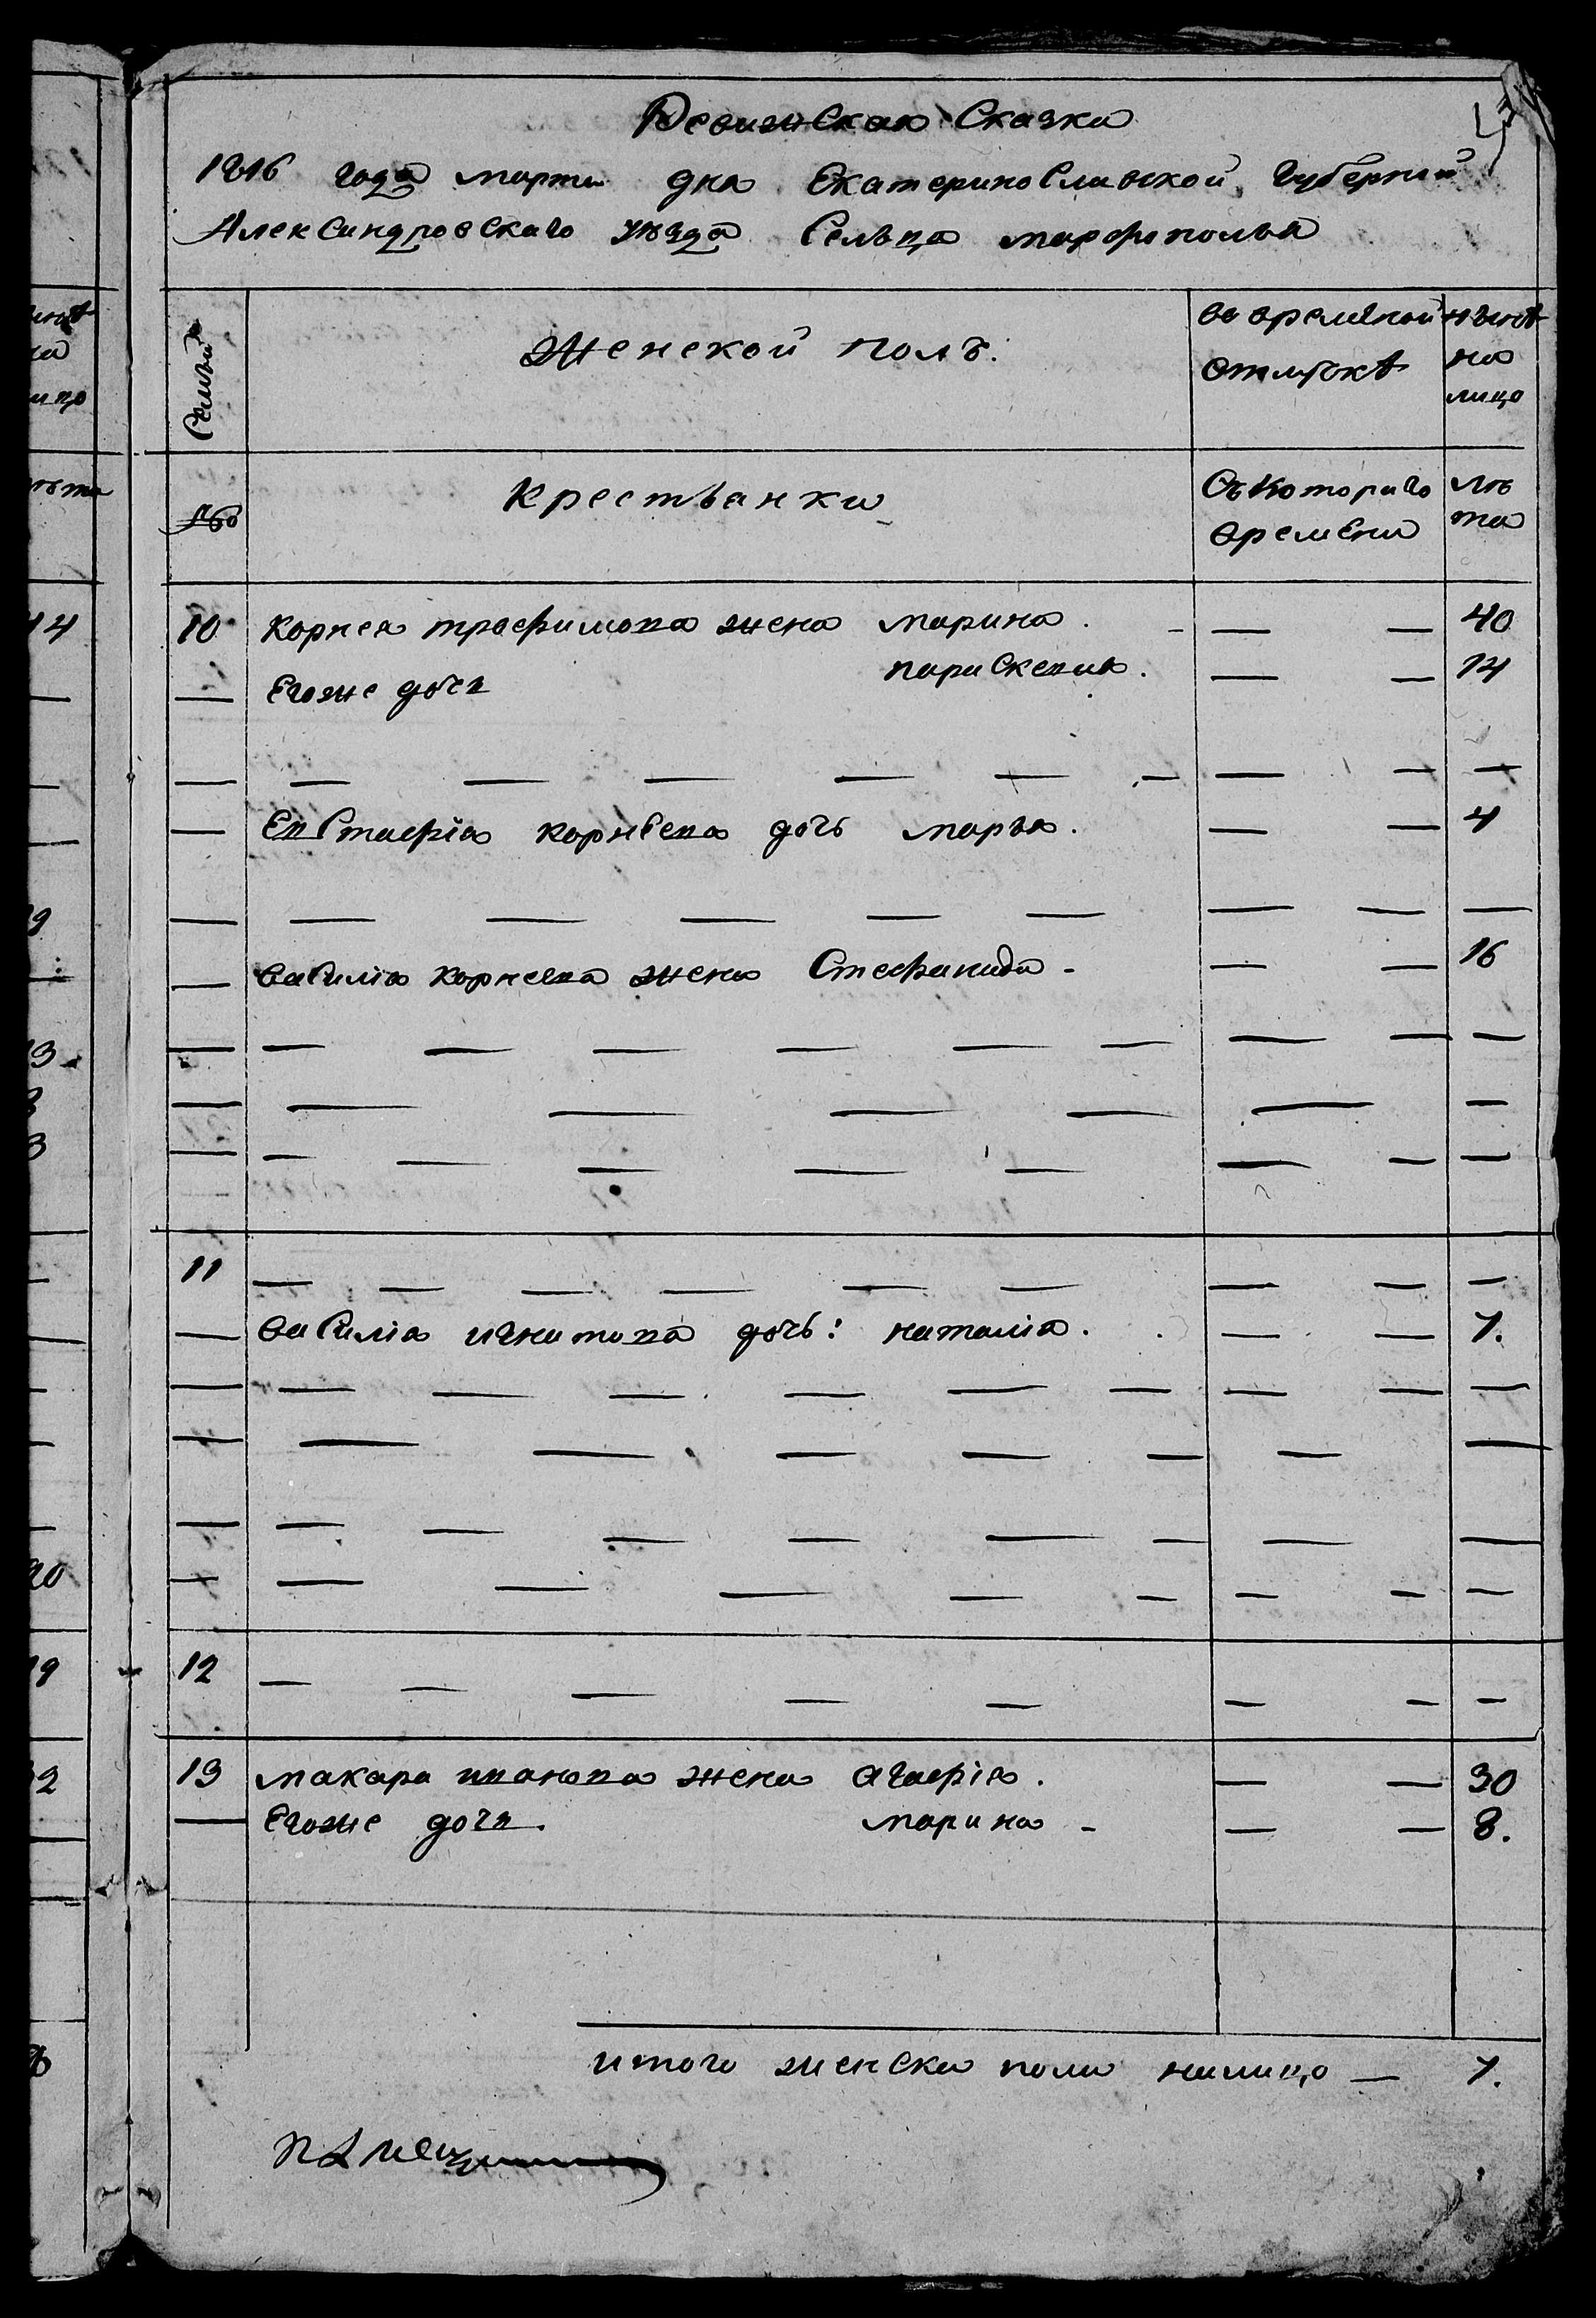 Ревижская Сказка
1816 года марта дня Екатеринославской Губернии
Александровскаго уѣзда Сельца марфополья
Семьи
Женской полъ.
во временной отлучкѣ
нынѣ на лицо
№
Крестьянки
Съ котораго времени
лѣта
10 Корнея трофимова жена марина. — — 40
— Егоже дочь парасковия. — — 14
— — — — — — — — — —
— Евстафія корнѣева дочь марья. — — 4
— — — — — — — — —
— василія корнеева жена Стефанида - — — 16
— — — — — — — — — —
— — — — — — —
— — — — — — — — —
11 — — — — — — — — —
— василія игнатова дочь: наталія. — — 7.
— — — — — — — — — —
— — — — — — — —
— — — — — — — — —
— — — — — — — — —
12 — — — — — — — —
13 макара иванова жена агафія. — — 30
— Егоже дочь. марина - — — 8.
итого женска пола налицо — 7.